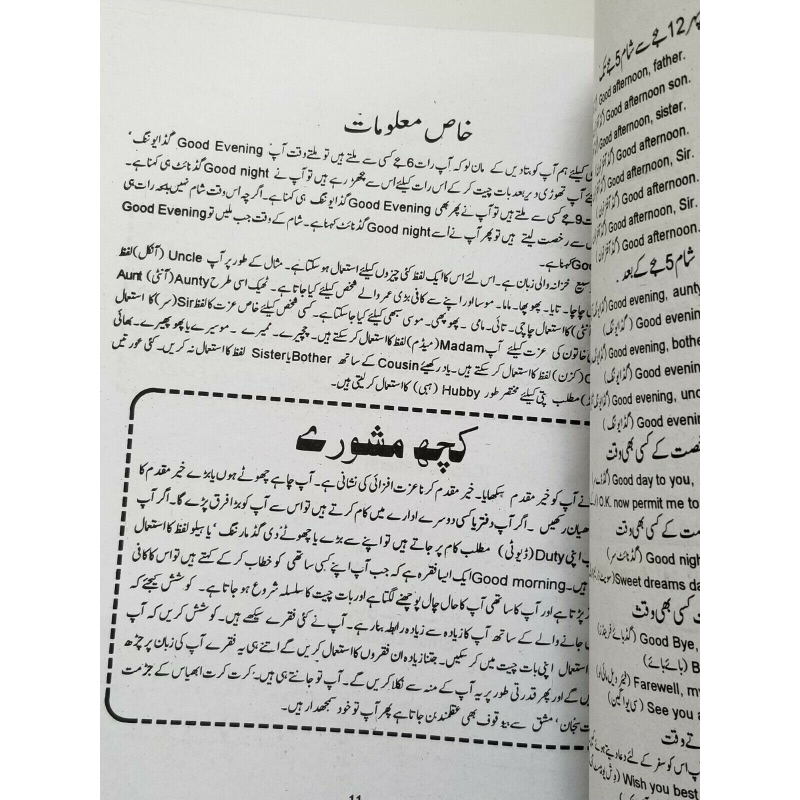 خاص معلومات
کیلئے ہم آپ کو بتا دیں کے مان لو کہ آپ رات 6 بجے کسی سے ملتے ہیں تو ملتے وقت آپ Good Evening گڈ ایوننگ‘
آپ تھوڑی دیر بعد بات چیت کر کے اس رات کیلئے اس سے بچھڑ رہے ہیں تو آپ نے Good night گڈ نائٹ ہی کہنا ہے۔
9 بجے کسی سے ملتے ہیں تو آپ نے پھر بھی Good Evening ہی کہنا ہے۔ اگرچہ اس وقت شام نہیں بلکہ رات ہی
سے رخصت لیتے ہیں تو پھر آپ نے اُسے Good night گڈ نائٹ کہنا ہے۔ شام کے وقت جب ملیں تو Good Evening
کہنا ہے۔
وسیع خزانہ والی زبان ہے۔ اس لئے اس کا ایک لفظ کئی چیزوں کیلئے استعمال ہو سکتا ہے۔ مثال کے طور پر آپ Uncle (انکل) لفظ
چاچا۔ تایا۔ پھوپھا۔ ماما۔ موسا اور اپنے سے کافی بڑی عمر والے شخص کیلئے کیا جاتا ہے۔ ٹھیک اسی طرح Aunty (آنٹی) Aunt
(آنٹی) کا استعمال چاچی۔ تائی۔ مامی۔ پھوپھی۔ موسی سبھی کیلئے کیا جا سکتا ہے۔ کسی شخص کیلئے خاص عزت کا لفظ Sir (سر) کا استعمال
خاتون کی عزت کیلئے آپ Madam (میڈم) لفظ کا استعمال کر سکتے ہیں۔ چچیرے۔ ممیرے۔ موسیرے یا پھوپھیرے۔ بھائی
(کزن) لفظ کا استعمال کر سکتے ہیں۔ یاد رکھیے Cousin کے ساتھ Bother یا Sister لفظ کا استعمال نہ کریں۔ کئی عورتیں
مطلب پتی کیلئے مختصر طور Hubby (ہبی) کا استعمال کر لیتی ہیں۔
کچھ مشورے
نے آپ کو خیر مقدم سکھایا۔ خیر مقدم کرنا عزت افزائی کی نشانی ہے۔ آپ چاہے چھوٹے ہوں یا بڑے خیر مقدم کا
دھیان رکھیں۔ اگر آپ دفتر یا کسی دوسرے ادارے میں کام کرتے ہیں تو اس سے آپ کو بڑا فرق پڑے گا۔ اگر آپ
اپنی Duty (ڈیوٹی) مطلب کام پر جاتے ہیں تو اپنے سے بڑے یا چھوٹے دی گڈ مارننگ‘ یا ہیلو لفظ کا استعمال
ہیں۔ Good morning ایک ایسا فقرہ ہے کہ جب آپ اپنے کسی ساتھی کو خطاب کر کے کہتے ہیں تو اس کا کافی
پڑتا ہے اور آپ کا ساتھی آپ کا حال چال پوچھنے لگتا ہے اور بات چیت کا سلسلہ شروع ہو جاتا ہے۔ کوشش کیجئے کہ
جانے والے کے ساتھ آپ کا زیادہ سے زیادہ رابطہ بنا رہے۔ آپ نے کئی فقرے سیکھے ہیں۔ کوشش کریں کہ آپ
استعمال اپنی بات چیت میں کر سکیں۔ جتنا زیادہ ان فقروں کا استعمال کریں گے اتنے ہی یہ فقرے آپ کی زبان پر چڑھ
گے اور پھر قدرتی طور پر یہ آپ کے منہ سے نکلا کریں گے۔ آپ تو جانتے ہی ہیں۔ کرت کرت ابھیاس کے جڑ مت
سجان‘ مشق سے بیوقوف بھی عقلمند بن جاتا ہے پھر آپ تو خود سمجھدار ہیں۔
11
12 بجے سے شام 5 بجے تک
Good afternoon, father.
Good afternoon son.
Good afternoon, sister.
Good afternoon.
Good afternoon, Sir.
Good afternoon.
Good afternoon, Sir.
Good afternoon.
شام 5 بجے کے بعد۔
Good evening, aunty
Good evenin (گڈ ایوننگ)
Good evening, bothe
Good evening (گڈ ایوننگ)
Good evening, unc
Good evenin (گڈ ایوننگ)
رخصت کے کسی بھی وقت
Good day to you,
O.K. now permit me to
کے کسی بھی وقت
Good nigh (گڈ نائٹ سر)
Sweet dreams da
کسی بھی وقت
Good Bye,
B (بائے بائے)
Farewell, my
See you a (سی یو اگین)
وقت
آپ اس کو سفر کے لئے دعا دیتے ہوئے
Wish you best